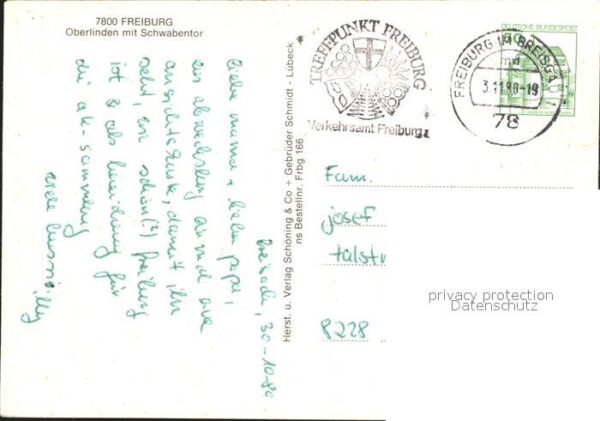 7800 FREIBURG
Oberlinden mit Schwabentor
freitach, 30-10-80
liebe mama + lieber papi,
ein abwechslung an und
ansichtskarte, damit ihr
seht, wie schön(?) freiburg
ist & als bereicherung für
die ak-sammlung
viele bussi
Herst. u. Verlag Schöning & Co + Gebrüder Schmidt - Lübeck
ns Bestellnr. Frbg 166
TREFFPUNKT FREIBURG
Verkehrsamt Freiburg
DEUTSCHE BUNDESPOST
FREIBURG IM BREISGAU
3.11.80-19
78
Fam.
josef
talstr
8228
privacy protection
Datenschutz